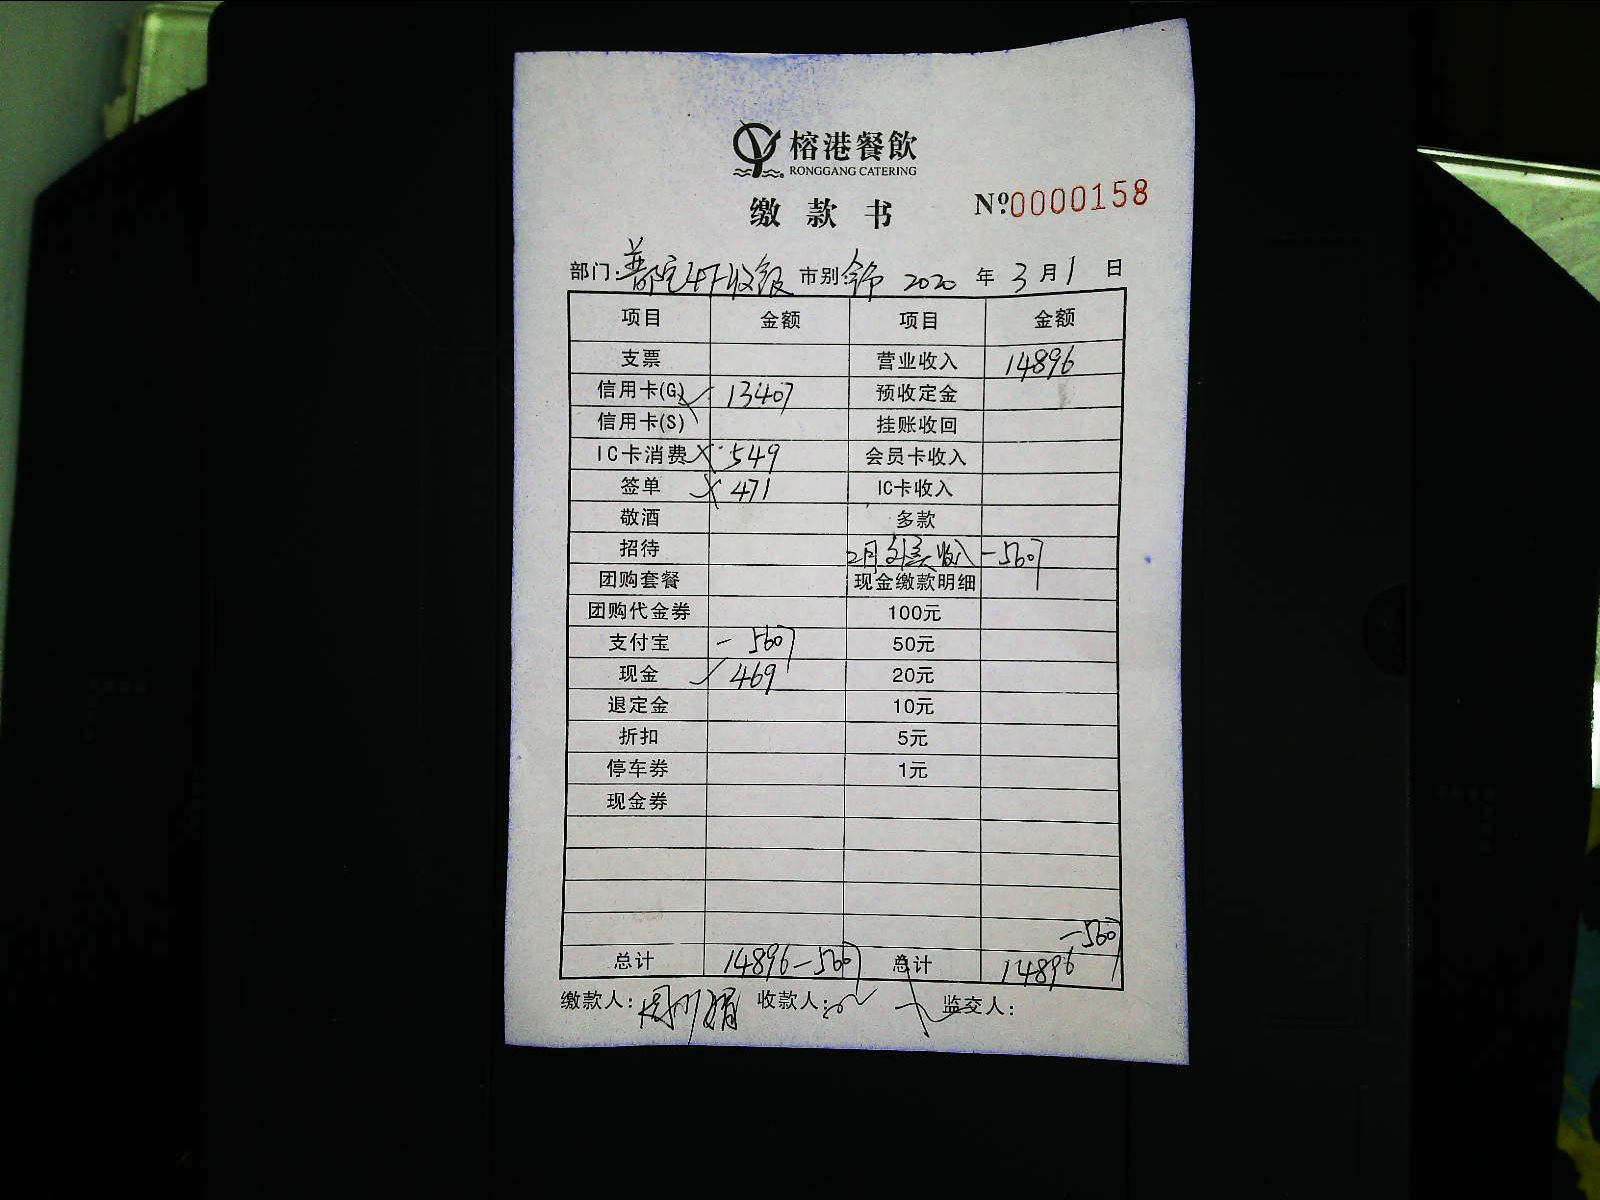 榕港餐飲
RONGGANG CATERING
缴款书
No.0000158
部门:普陀4F收银 市别:全市 2020年3月1日
项目 金额 项目 金额
支票 营业收入 14896
信用卡(G) 13407 预收定金
信用卡(S) 挂账收回
IC卡消费 549 会员卡收入
签单 471 IC卡收入
敬酒 多款
招待 2月外卖收入 -5607
团购套餐 现金缴款明细
团购代金券 100元
支付宝 -5607 50元
现金 469 20元
退定金 10元
折扣 5元
停车券 1元
现金券
-5607
总计 14896-5607 总计 14896
缴款人: 收款人: 监交人: